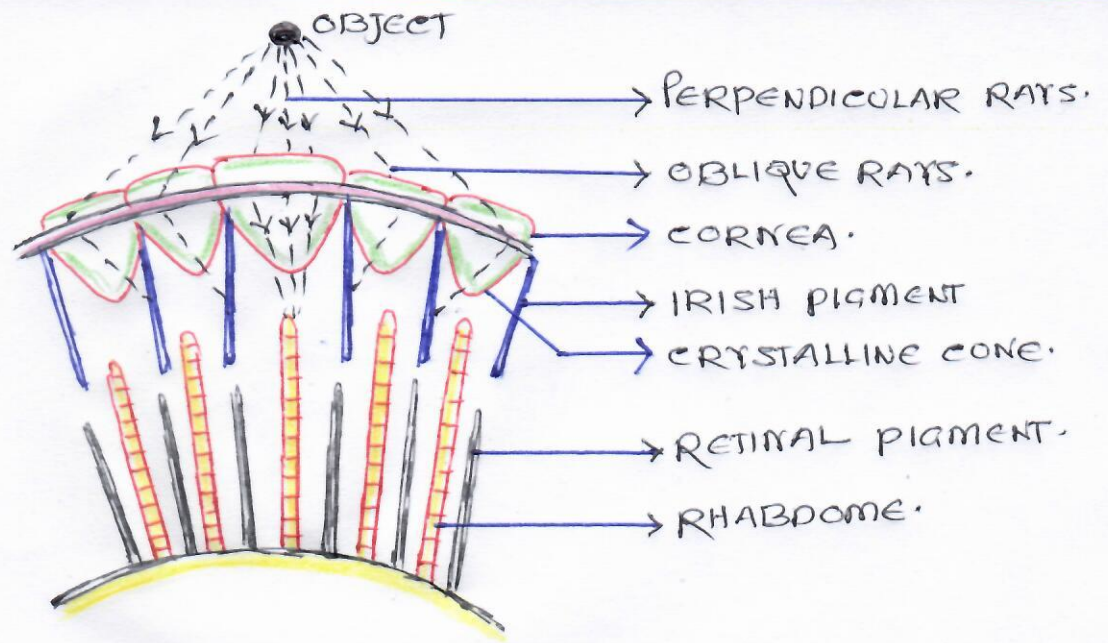 OBJECT
PERPENDICULAR RAYS.
OBLIQUE RAYS.
CORNEA.
IRISH PIGMENT
CRYSTALLINE CONE.
RETINAL PIGMENT.
RHABDOME.